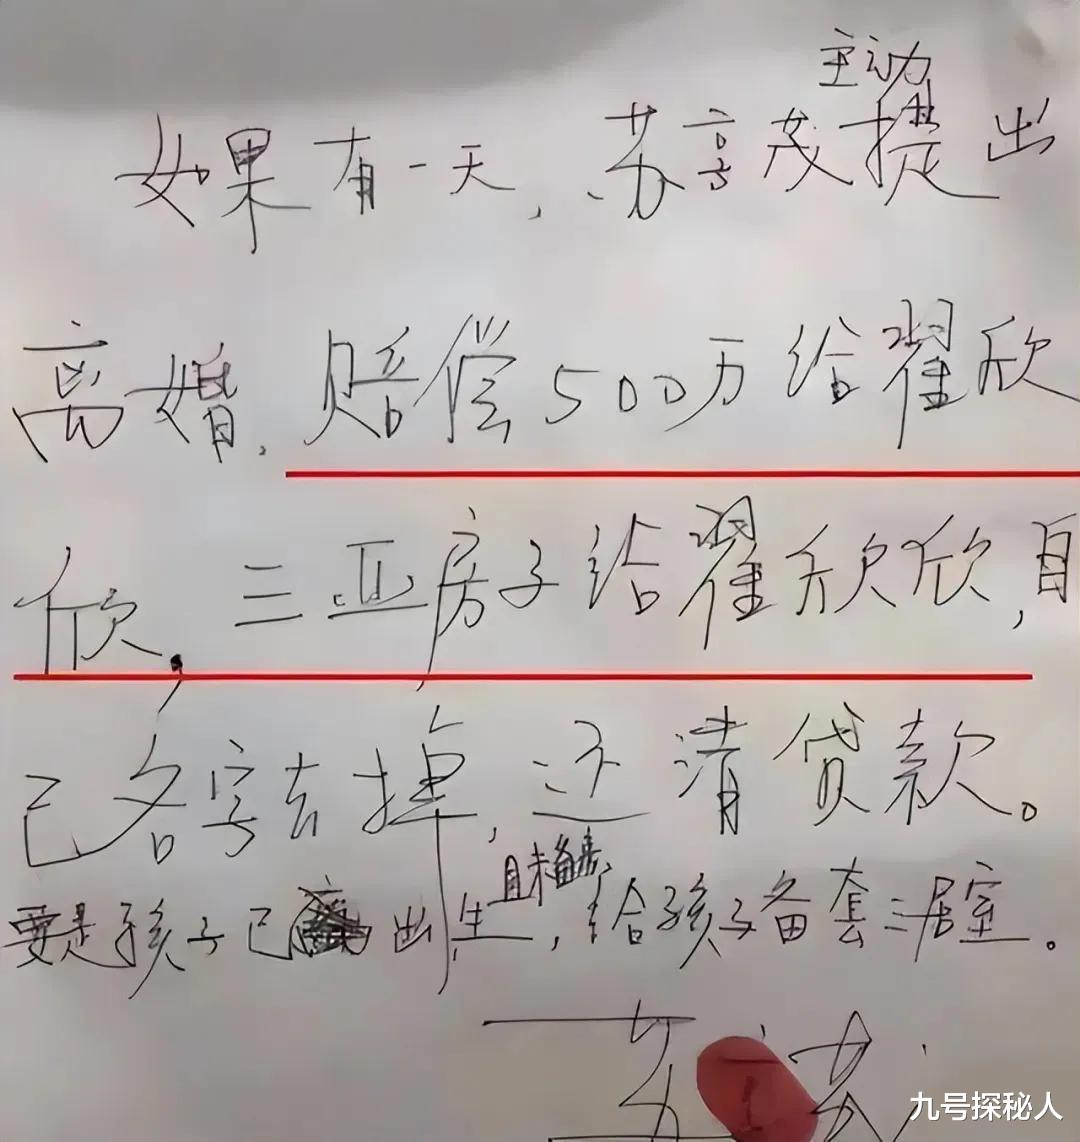 主动
如果有一天,苏享茂提出
离婚,赔偿500万给翟欣
欣,三亚房子给翟欣欣,自
己名字去掉,还清贷款。
且未
要是孩子已出生,给孩子备套三居室。
苏 茂
九号探秘人